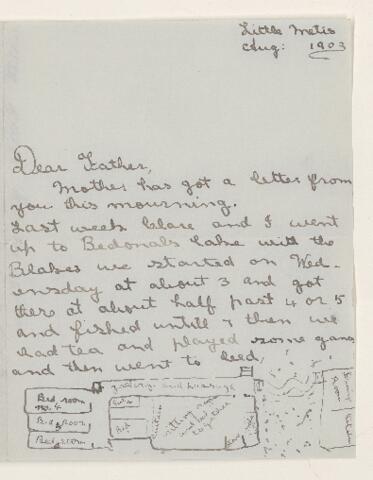 Little Metis
Aug: 1903
Dear Father,
Mother has got a letter from
you this mourning.
Last week Clare and I went
up to Bedonals lake with the
Blakes we started on Wed-
ensday at about 3 and got
there at about half past 4 or 5
and fished untill 7 then we
had tea and played some games
and then went to bed,
Bed room
no. 4
Bed room
Bed room
sitting room
and bed
together